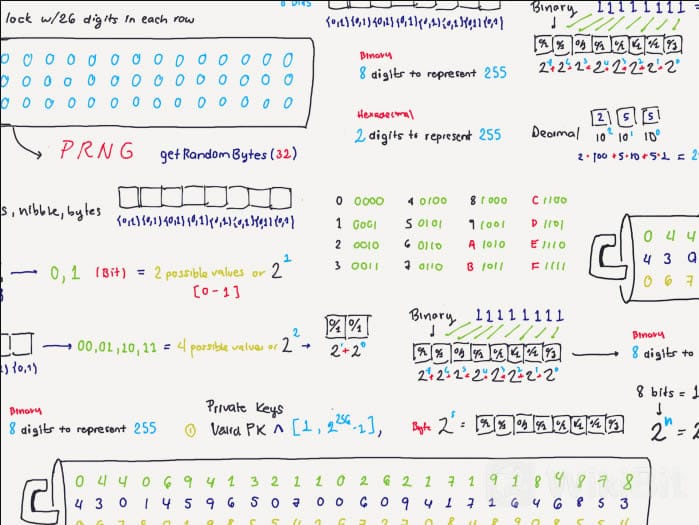 lock w/26 digits in each row
0 0 0 0 0 0 0 0 0 0 0 0 0 0
0 0 0 0 0 0 0 0 0 0 0 0 0 0
0 0 0 0 0 0 0 0 0 0 0 0 0 0
PRNG getRandomBytes(32)
Binary
8 digits to represent 255
Hexadecimal
2 digits to represent 255
Binary 11111111 =
Decimal 2 5 5
10² 10¹ 10⁰
2·100+5·10+5·1 = 2
s, nibble, bytes
0 0000 4 0100 8 1000 C 1100
1 0001 5 0101 9 1001 D 1101
2 0010 6 0110 A 1010 E 1110
3 0011 7 0110 B 1011 F 1111
0 4 4
4 3 0
0 6 7
0,1 (Bit) = 2 possible values or 2¹
[0-1]
00,01,10,11 = 4 possible values or 2²
0/1 0/1
2¹+2⁰
Binary 11111111
Binary
8 digits to
8 bits = 1
Binary
8 digits to represent 255
Private Keys
① Valid PK ∧ [1, 2²⁵⁶-1],
Byte
0 4 4 0 6 9 4 1 3 2 1 1 0 2 6 2 1 7 1 9 1 8 4 8 7 8
4 3 0 1 4 5 9 6 5 0 7 0 0 6 0 9 4 1 7 2 6 4 6 8 5 3
WikiBit